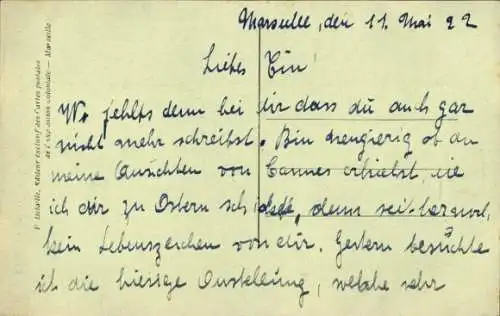 Marseille, den 11. Mai 22
Liebes
Wo fehlts denn bei dir dass du auch gar
nicht mehr schreibst. Bin neugierig ob du
meine Ansichten von Cannes erhielst, die
ich dir zu Ostern schickte, denn seither
kein Lebenszeichen von dir. Gestern besuchte
ich die hiesige Ausstellung, welche sehr
Editeur exclusif des Cartes postales
de l'Exposition coloniale — Marseille